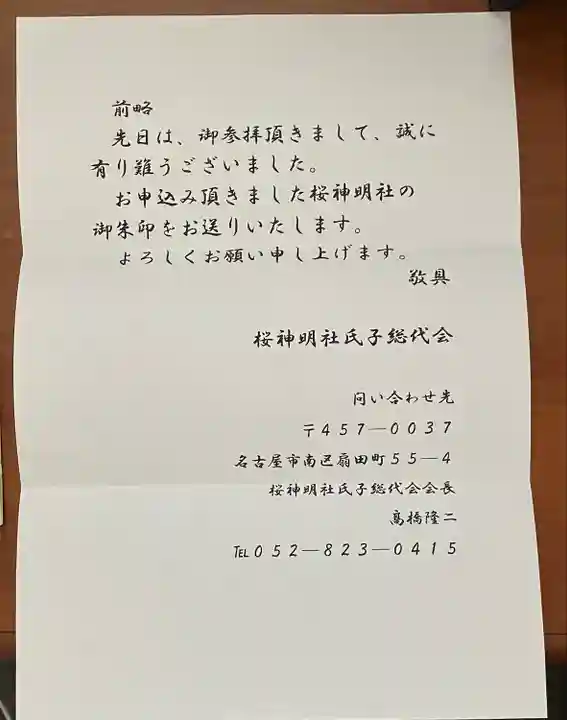 前略
先日は、御参拝頂きまして、誠に
有り難うございました。
お申込み頂きました桜神明社の
御朱印をお送りいたします。
よろしくお願い申し上げます。
敬具
桜神明社氏子総代会
問い合わせ先
〒457―0037
名古屋市南区扇田町55―4
桜神明社氏子総代会会長
髙橋隆二
℡052―823―0415